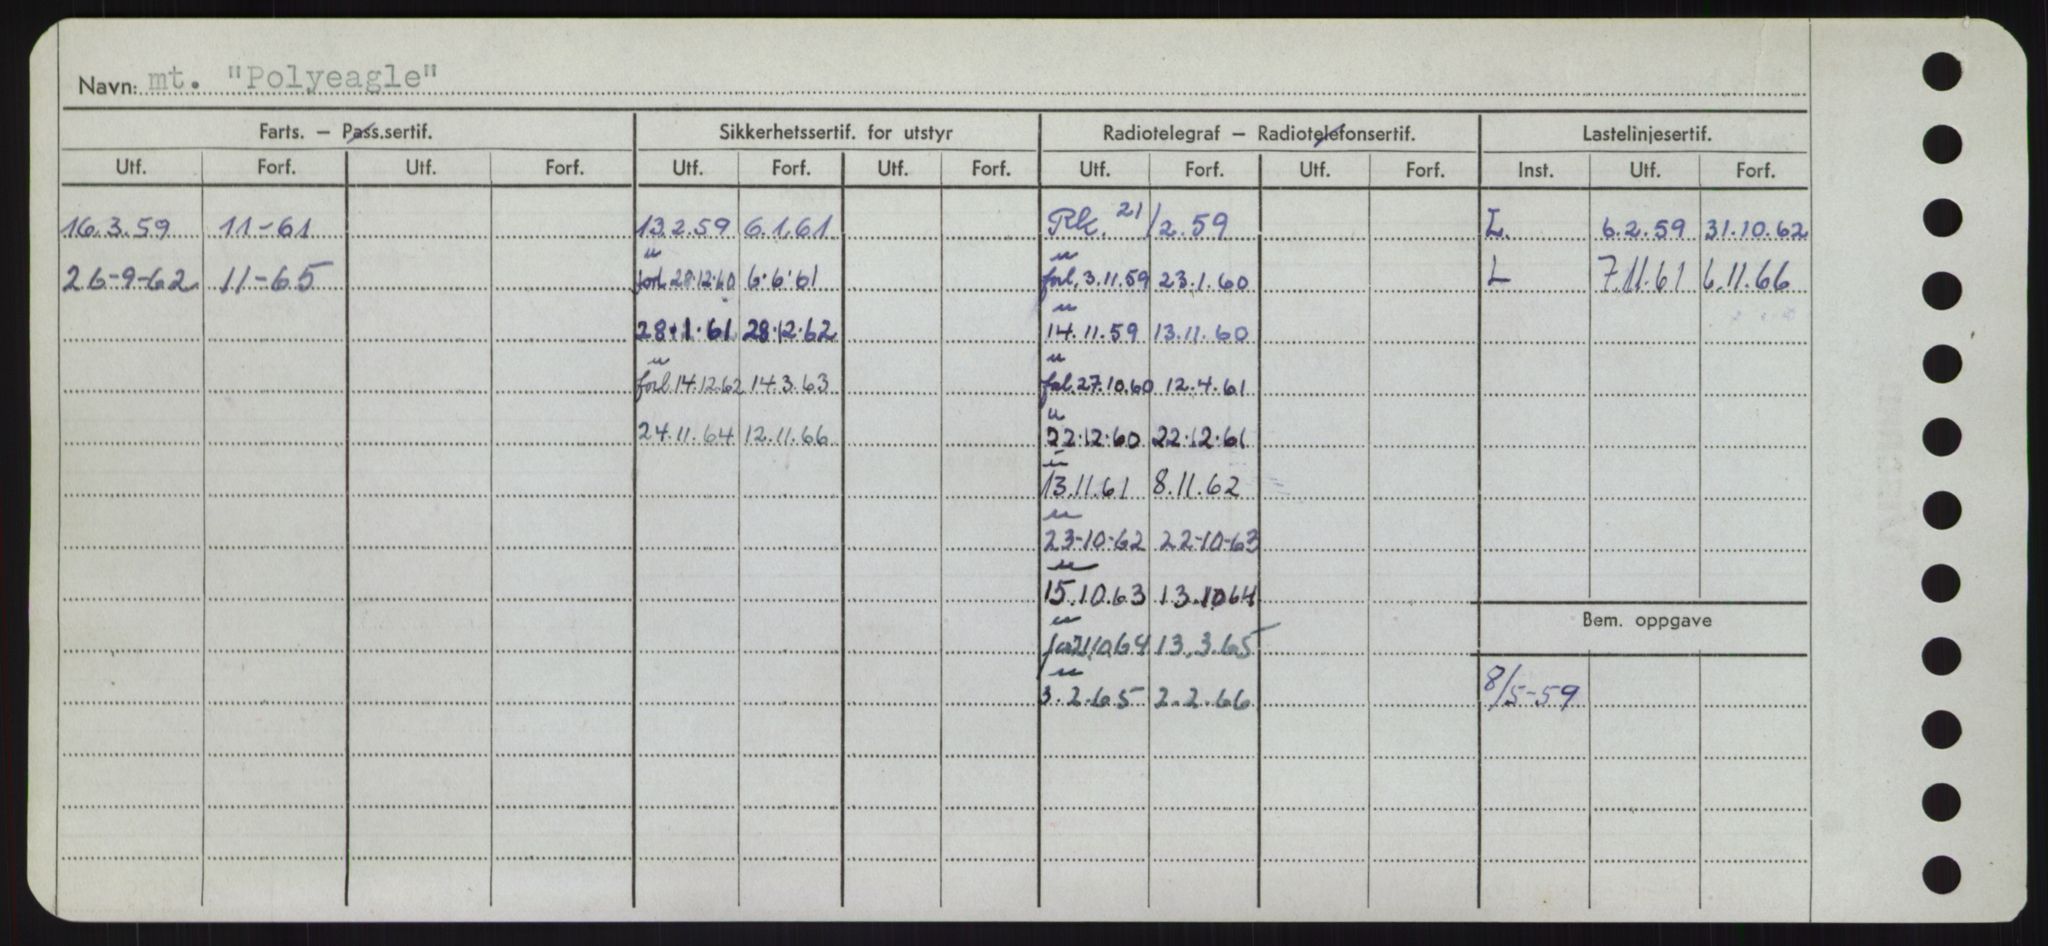 Navn: mt. "Polyeagle"
Farts. — Pass.sertif. Sikkerhetssertif. for utstyr Radiotelegraf — Radiotelefonsertif. Lastelinjesertif.
Utf. Forf. Utf. Forf. Utf. Forf. Utf. Forf. Utf. Forf. Utf. Forf. Inst. Utf. Forf.
16.3.59 11-61 13.2.59 6.1.61 Rk. 21/2.59 L. 6.2.59 31.10.62
" "
26-9-62 11-65 forl. 28.12.60 6.6.61 forl. 3.11.59 23.1.60 L 7.11.61 6.11.66
"
28.1.61 28.12.62 14.11.59 13.11.60
" "
forl. 14.12.62 14.3.63 forl. 27.10.60 12.4.61
"
24.11.64 12.11.66 22.12.60 22.12.61
"
13.11.61 8.11.62
"
23-10-62 22-10-63
"
15.10.63 13.10.64
Bem. oppgave
"
21.10.64 13.3.65
"
3.2.65 2.2.66 8/5-59